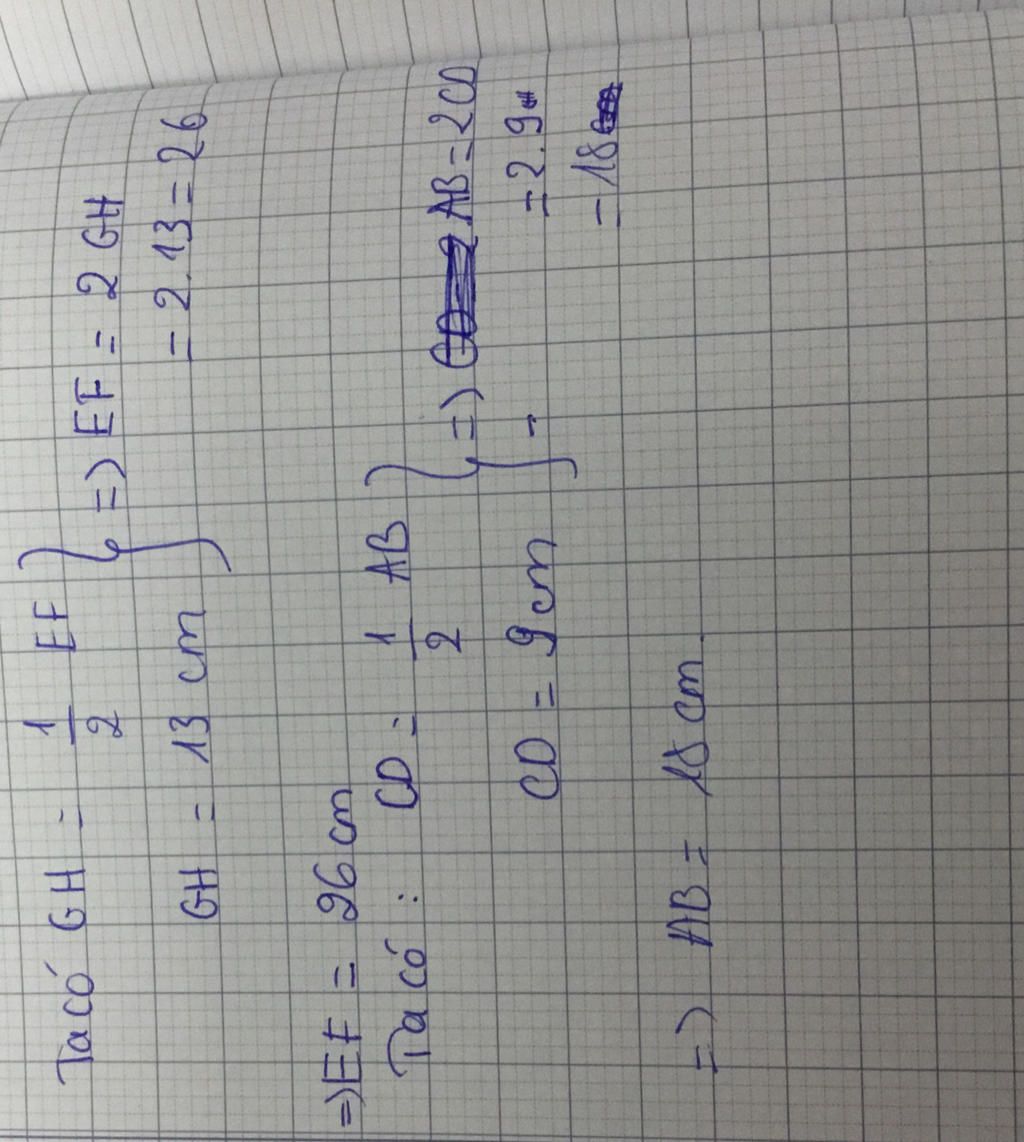 Ta có GH = 1/2 EF } => EF = 2 GH
GH = 13 cm = 2.13 = 26
=> EF = 26 cm
Ta có : CD = 1/2 AB } => AB = 2CD
CD = 9 cm = 2.9
= 18
=> AB = 18 cm